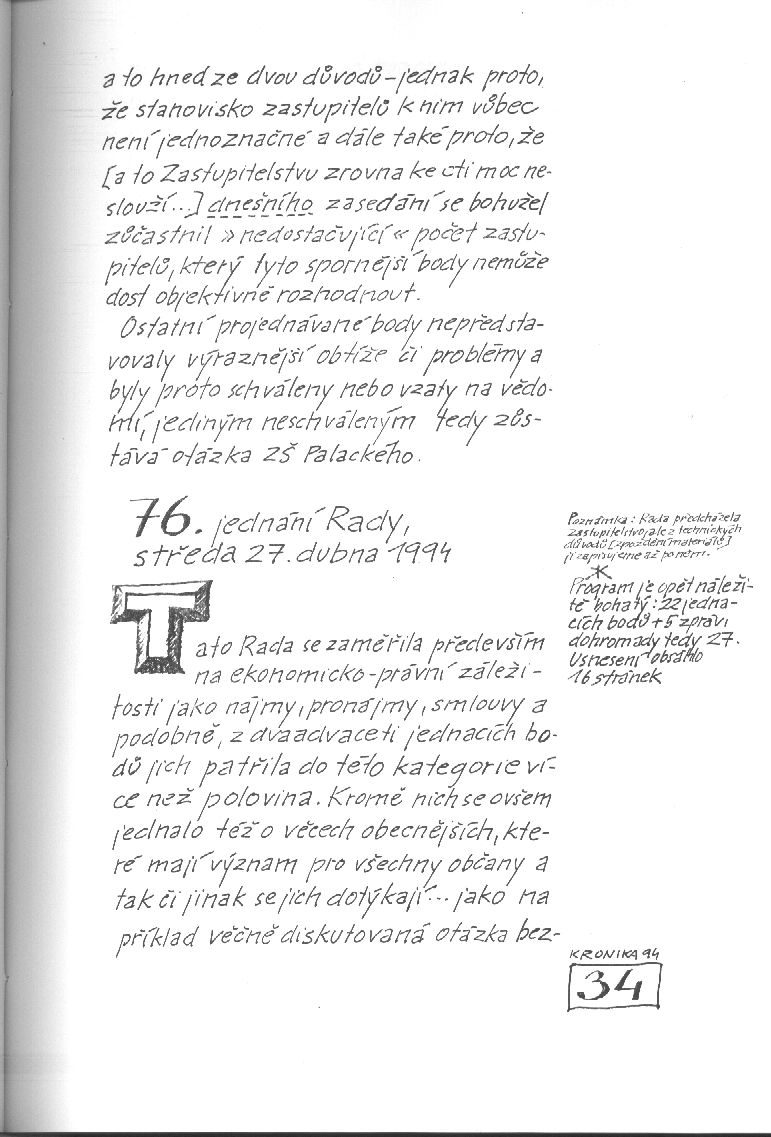 a to hned ze dvou důvodů – jednak proto,
že stanovisko zastupitelů k nim vůbec
není jednoznačné a dále také proto, že
[a to Zastupitelstvu zrovna ke cti moc ne-
slouží...] dnešního zasedání se bohužel
zůčastnil » nedostačující « počet zastu-
pitelů, který tyto spornější body nemůže
dost objektivně rozhodnout.
Ostatní projednávané body nepředsta-
vovaly výraznější obtíže či problémy a
byly proto schváleny nebo vzaty na vědo-
mí, jediným neschváleným tedy zůs-
tává otázka ZŠ Palackého.
76. jednání Rady,
středa 27. dubna 1994
Tato Rada se zaměřila především
na ekonomicko-právní záleži-
tosti jako nájmy, pronájmy, smlouvy a
podobně, z dvaadvaceti jednacích bo-
dů jich patřila do této kategorie ví-
ce než polovina. Kromě nich se ovšem
jednalo též o věcech obecnějších, kte-
ré mají význam pro všechny občany a
tak či jinak se jich dotýkají... jako na
příklad věčně diskutovaná otázka bez-
Poznámka: Rada předcházela
zastupitelstvo, ale z technických
důvodů [zpoždění materiálů]
ji zapisujeme až po něm.
Program je opět náleži-
tě bohatý: 22 jedna-
cích bodů + 5 zpráv,
dohromady tedy 27.
Usnesení obsáhlo
16 stránek
KRONIKA 94
34